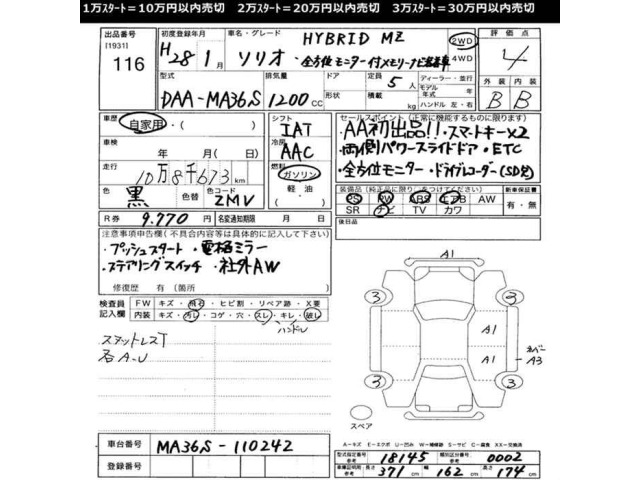 1万スタート=10万円以内売切　2万スタート=20万円以内売切　3万スタート=30万円以内売切
出品番号 [1931] 116
初度登録年月 H28年1月
車名・グレード ソリオ HYBRID MZ
・全方位モニター付メモリーナビ装着車
2WD 4WD
評価点 4
型式 DAA-MA36S
排気量 1200cc
ドア 形状
定員 5人
積載 kg
ディーラー・並行
モデル年式 年
ハンドル 左・右
外装 内装
B B
車歴 自家用・( )
車検 年 月(日)
走行 10万8千673km
色 黒 色替 色コード ZMV
シフト IAT
冷房 AAC
燃料 ガソリン
軽油
( )
セールスポイント(正常に機能するものに限ります)
・AA初出品!!・スマートキー×2
・両側パワースライドドア・ETC
・全方位モニター・ドライブレコーダー(SD欠)
装備品(純正品に限り○をつけてください)
PS PW ABS エアB AW
SR ナビ TV カワ
新車保証書 有・無
R券 9.770円
名変通知期限 月 日
後日品
注意事項申告欄(不具合内容等は具体的に記入して下さい)
・プッシュスタート・電格ミラー
・ステアリングスイッチ・社外AW
修復歴 有(箇所 )
検査員記入欄
FW キズ・飛石・ヒビ割・リペア跡・X要
内装 キズ・汚レ・コゲ・穴・スレ・キレ・破レ
ハンドル
スタットレスT
石A-U
A1
3 3
A1
A1
A3
3 3
スペア
A=キズ E=エクボ U=凹み W=補修跡 S=サビ C=腐食 XX=交換済
車台番号 MA36S-110242
登録番号
型式指定番号 参考 18145
類別区分番号 参考 0002
車検証明 参考 長さ 371cm 幅 162cm 高さ 174cm